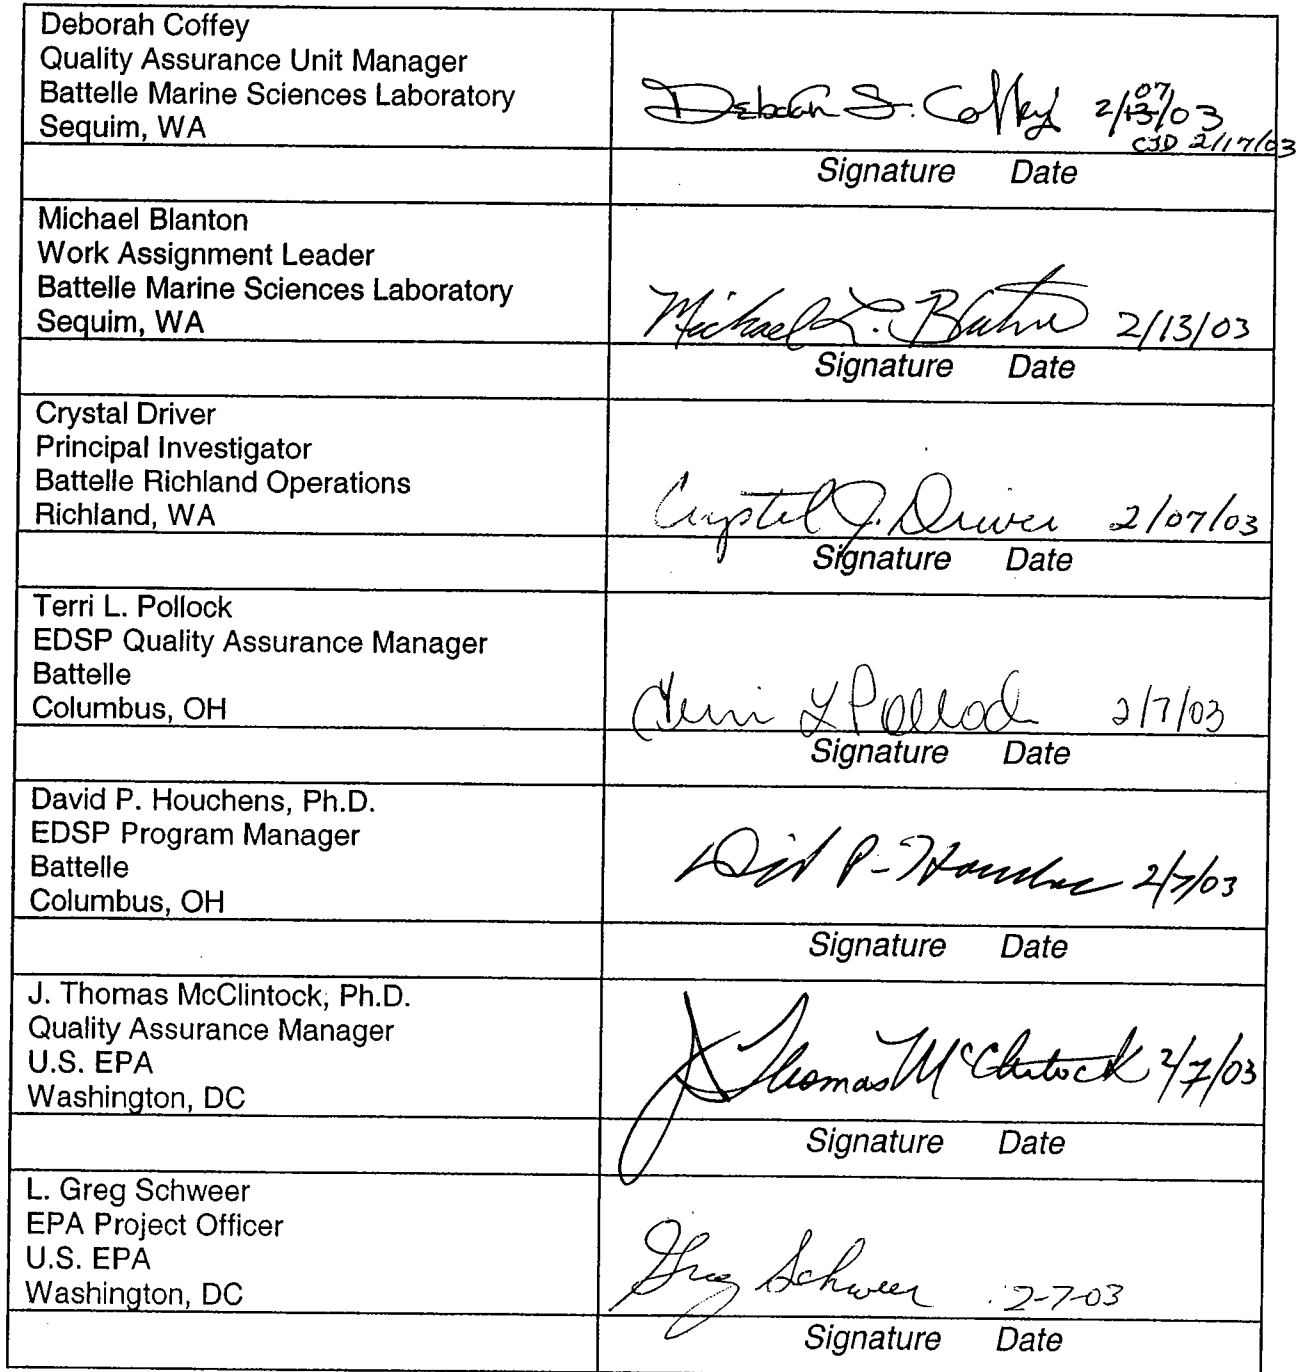 Deborah Coffey
Quality Assurance Unit Manager
Battelle Marine Sciences Laboratory
Sequim, WA
Deborah S. Coffey 2/13/03
07
CJD 2/17/03
Signature Date
Michael Blanton
Work Assignment Leader
Battelle Marine Sciences Laboratory
Sequim, WA
Michael L. Blanton 2/13/03
Signature Date
Crystal Driver
Principal Investigator
Battelle Richland Operations
Richland, WA
Crystal J. Driver 2/07/03
Signature Date
Terri L. Pollock
EDSP Quality Assurance Manager
Battelle
Columbus, OH
Terri L Pollock 2/7/03
Signature Date
David P. Houchens, Ph.D.
EDSP Program Manager
Battelle
Columbus, OH
David P. Houchens 2/7/03
Signature Date
J. Thomas McClintock, Ph.D.
Quality Assurance Manager
U.S. EPA
Washington, DC
J Thomas McClintock 2/7/03
Signature Date
L. Greg Schweer
EPA Project Officer
U.S. EPA
Washington, DC
Greg Schweer 2-7-03
Signature Date